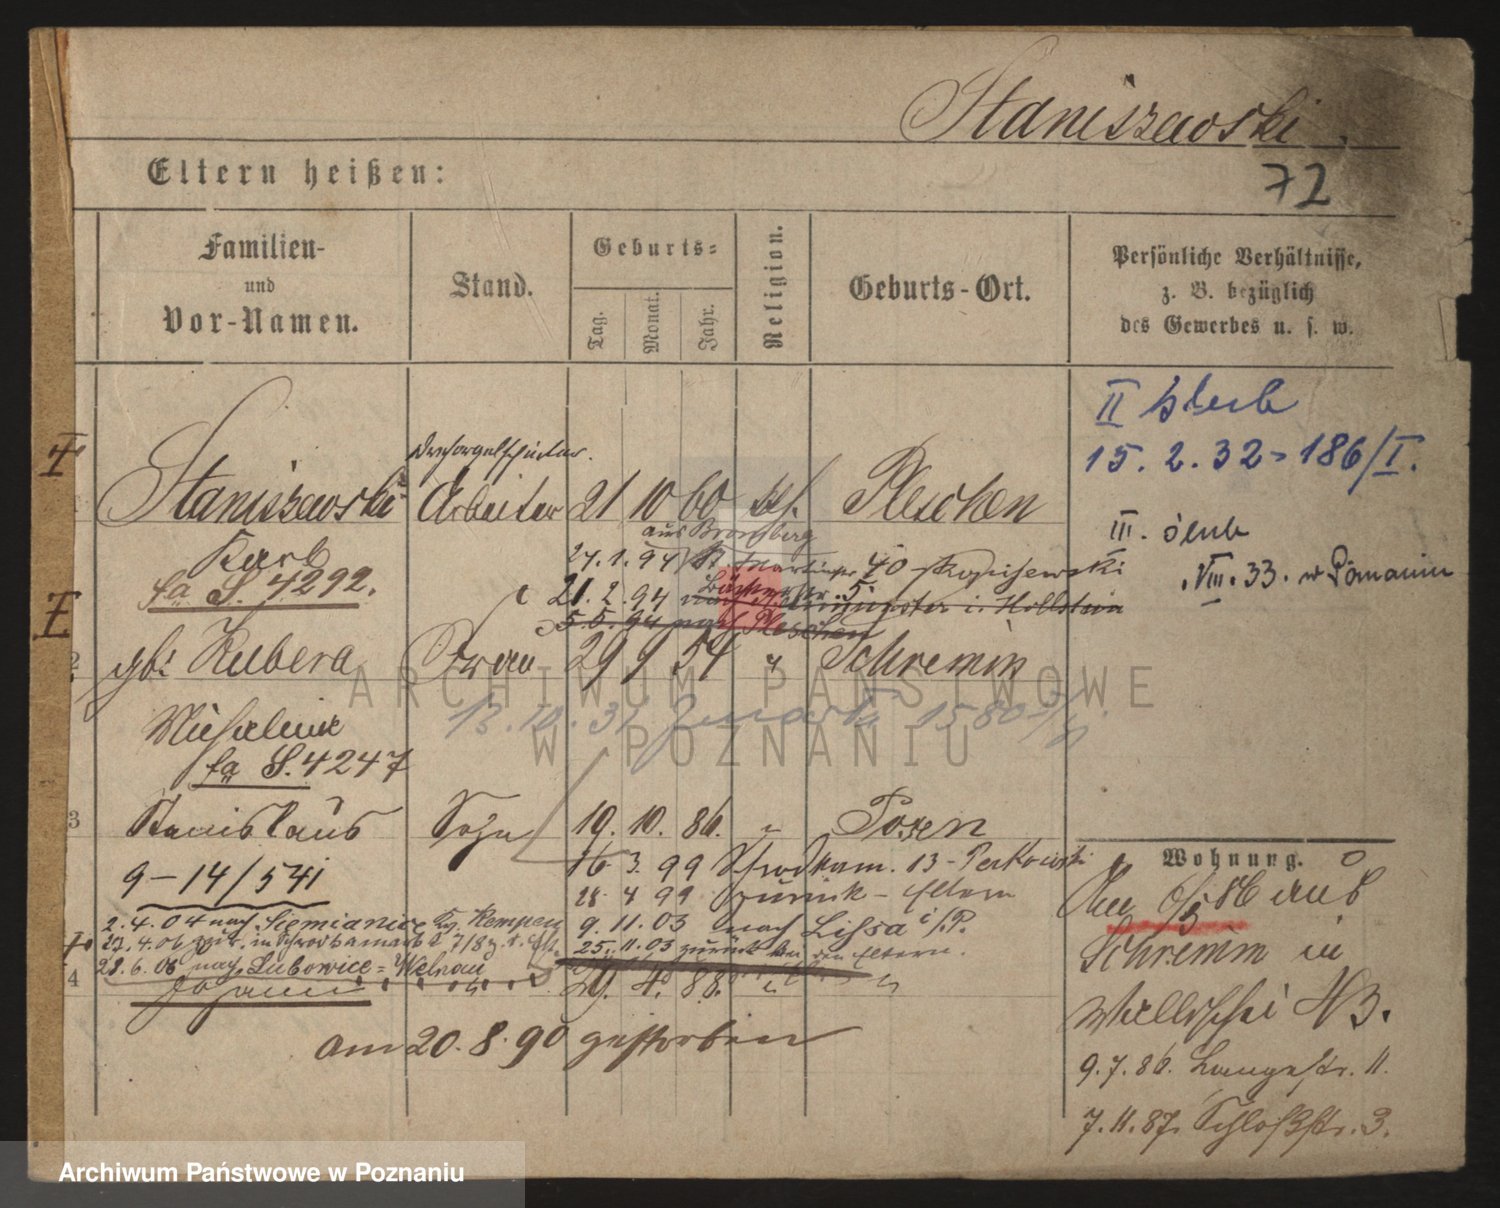 Staniszewski.
72
Eltern heißen:
Familien- und Vor-Namen.
Stand.
Geburts-
Tag.
Monat.
Jahr.
Religion.
Geburts-Ort.
Persönliche Verhältnisse, z. B. bezüglich des Gewerbes u. s. w.
II
15. 2. 32 - 186/I.
III.
VIII. 33.
Staniszewski Arbeiter 21 10 60 Pleschen
Karl
aus Bromberg
fa S. 4292.
24. 1. 94 St. Martinstr 40
21. 2. 94 5
5. 5. 94 nach Pleschen
2 gb: Kubera Frau 29 9 54 " Schrimm
Michalina
fa S. 4247
3 Stanislaus Sohn 19. 10. 86. " Posen
16 3. 99 Schrodkam. 13 -
9-14/541
28. 4 99 zurück - Eltern
2. 4. 04 nach Siemianice Kr. Kempen
9. 11. 03 nach Lissa i/P.
25. 11. 03 zurück bei den Eltern.
28. 6. 06 nach Lubowice - Welnau
4 Johann 88
am 20. 8. 90 gestorben
Wohnung.
aus
Schrimm in
Wallischei 43.
9. 7. 86. Langestr. 11.
7. 11. 87. Schloßstr. 3.
ARCHIWUM PAŃSTWOWE
W POZNANIU
Archiwum Państwowe w Poznaniu